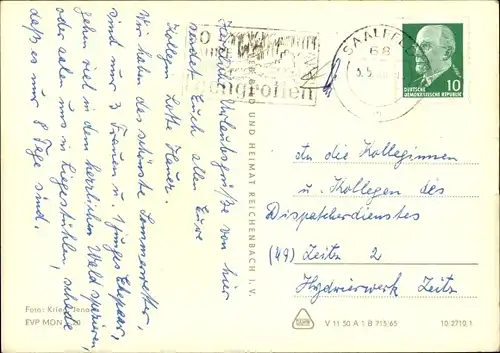 Herzliche Urlaubsgrüße von hier
sendet Euch allen Eure
Kollegin Lotte Heuer.
Wir haben das schönste Sommerwetter,
sind nur 3 Frauen u. 1 junges Ehepaar,
gehen viel in dem herrlichen Wald spazieren,
oder aalen uns in Liegestühlen, schade
daß es nur 8 Tage sind.
Foto: Krieg, Jena
EVP MDN
UND HEIMAT REICHENBACH I. V.
SAALFELD
68
DEUTSCHE
DEMOKRATISCHE REPUBLIK
10
An die Kolleginnen
u. Kollegen des
Dispatcherdienstes
(49) Zeitz 2
Hydrierwerk Zeitz
V 11 50 A 1 B 715/65
10-2710.1